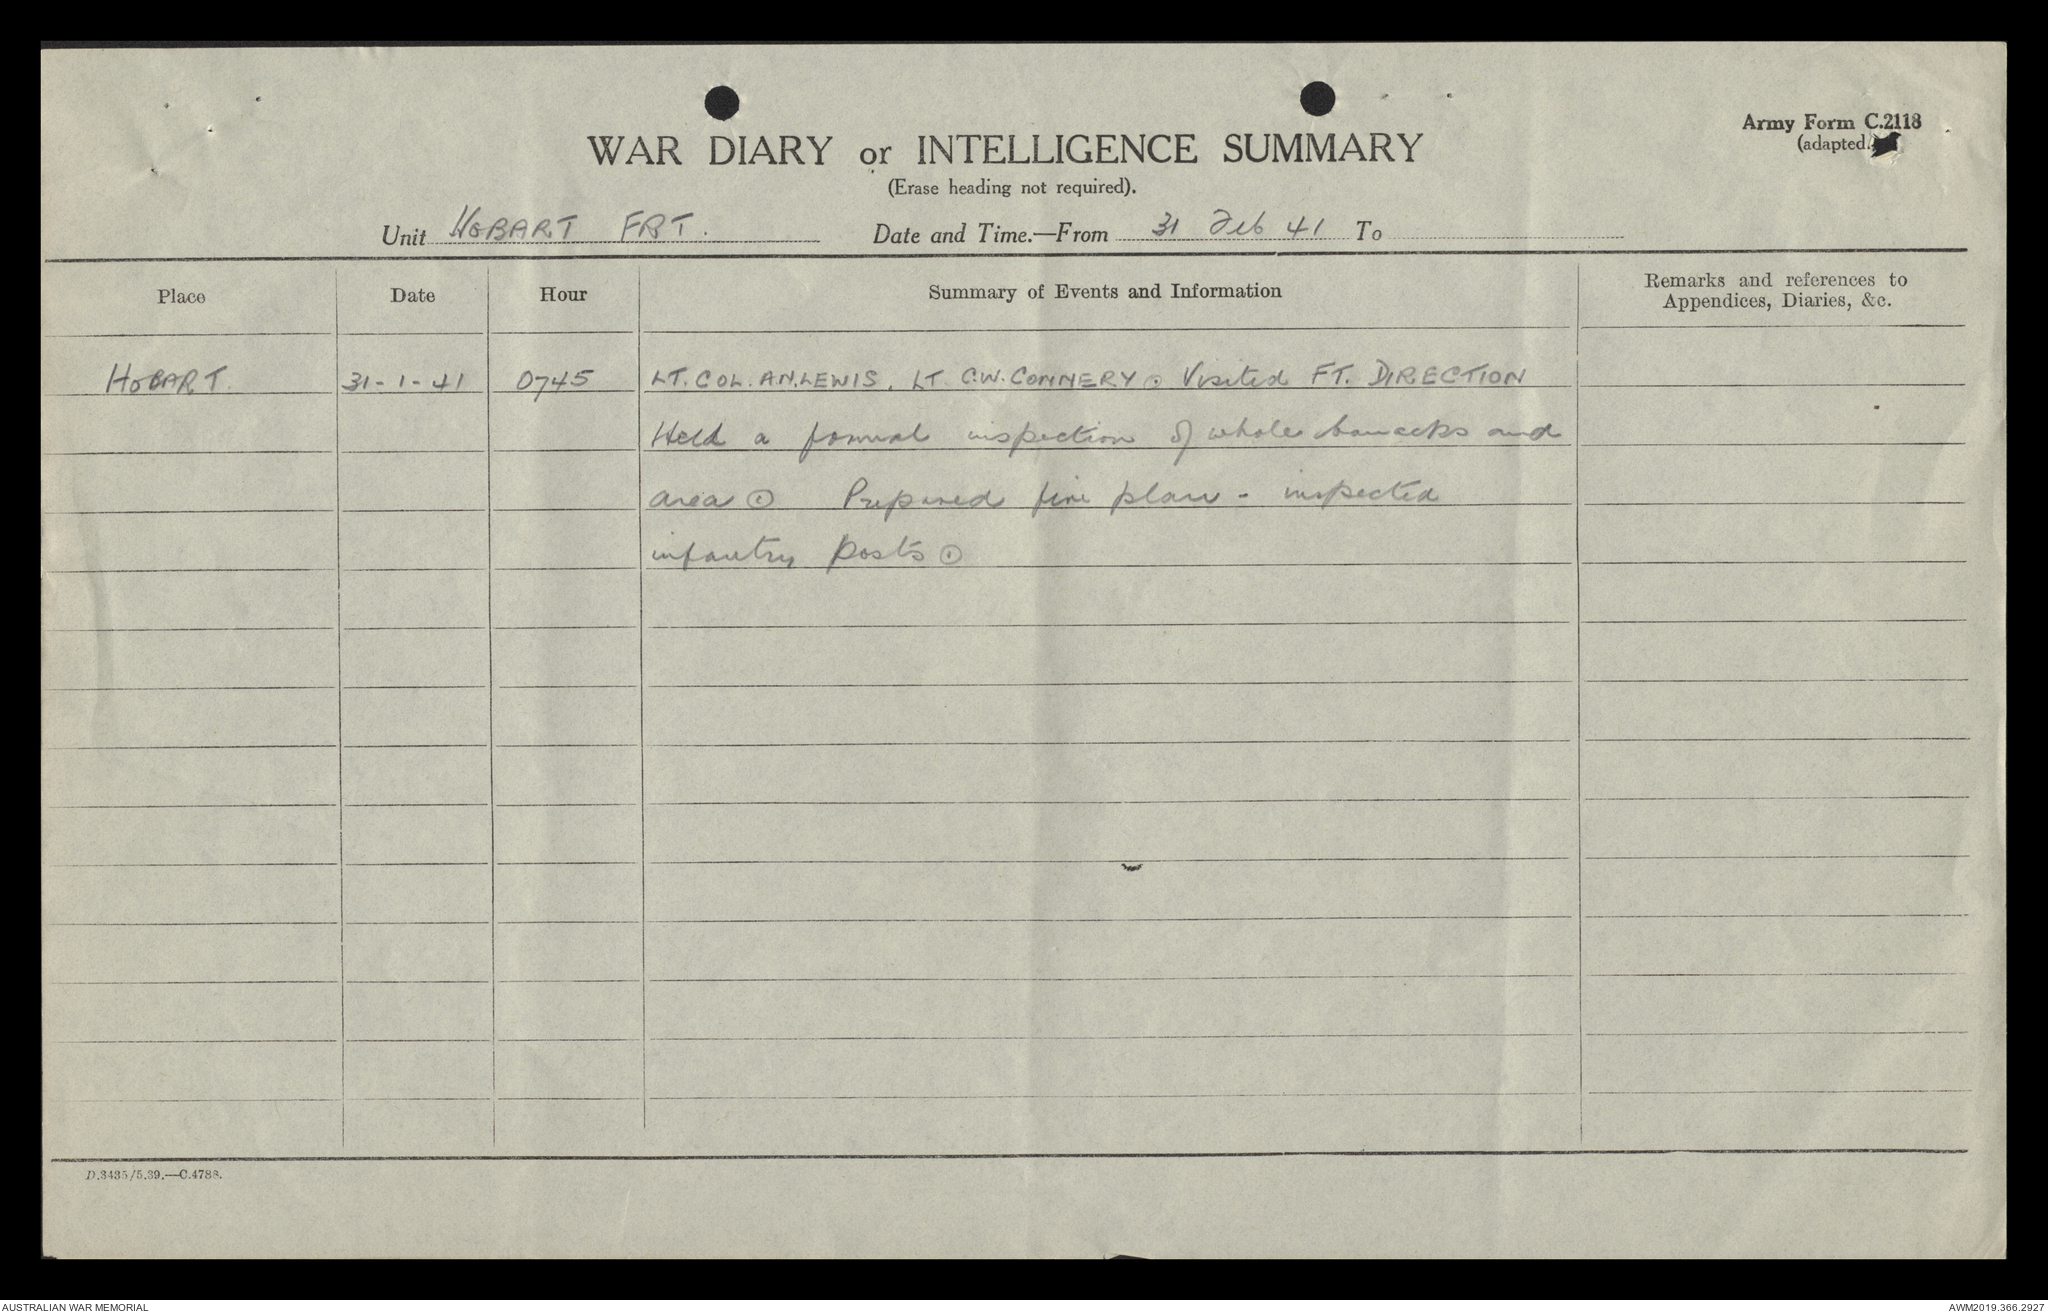 Army Form C.2118
(adapted.)
WAR DIARY or INTELLIGENCE SUMMARY
(Erase heading not required).
Unit HOBART FRT. Date and Time.—From 31 Feb 41 To
Place Date Hour Summary of Events and Information Remarks and references to
Appendices, Diaries, &c.
HOBART. 31-1-41 0745 LT. COL. A.N. LEWIS, LT C.W. CONNERY ⊙ Visited FT. DIRECTION
Held a formal inspection of whole barracks and
area ⊙ Prepared fire plan - inspected
infantry posts ⊙
D.3435/5.39.—C.4788.
AUSTRALIAN WAR MEMORIAL AWM2019.366.2927